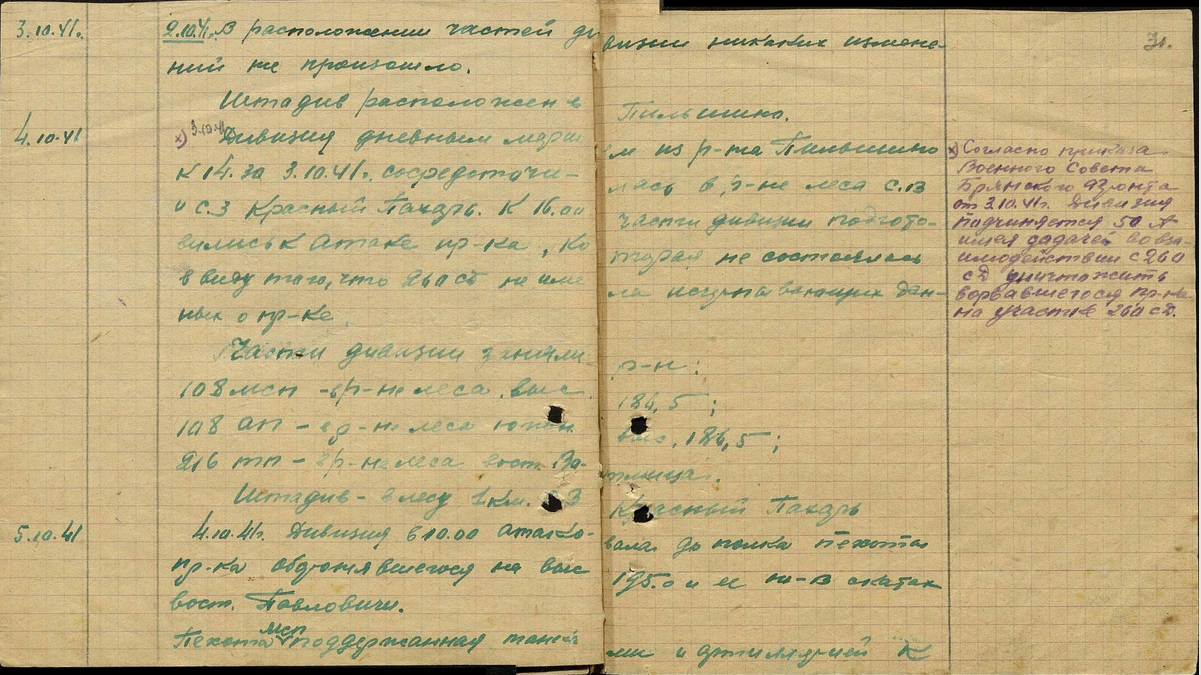 31.
3.10.41г. 2.10.41г. В расположении частей дивизии никаких измене-
ний не произошло.
Штадив расположен в Пильшино.
4.10.41 х) 3.10.41 Дивизия дневным маршем из р-на Пильшино
к 14.30 3.10.41г. сосредоточилась в р-не леса с.в
и с.з Красный Пахарь. К 16.00 части дивизии подгото-
вились к атаке пр-ка, которая не состоялась
в виду того, что 260 сд не имела исчерпывающих дан-
ных о пр-ке.
Части дивизии заняли р-н:
108 мсп - в р-не леса, выс. 186,5;
108 ап - в р-не леса южн. выс. 186,5;
216 тп - в р-не леса вост.
Штадив - в лесу 1 км. СЗ Красный Пахарь
5.10.41 4.10.41г. Дивизия в 10.00 атаковала до полка пехоты
пр-ка оборонявшегося на выс 195.0 и ее ю-в скатах
вост. Павловичи.
Пехота мсп поддержанная танками и артиллерией к
х) Согласно приказа
Военного Совета
Брянского Фронта
от 3.10.41г. Дивизия
подчиняется 50 А
имея задачей во вза-
имодействии с 260
сд уничтожить
ворвавшегося пр-ка
на участке 260 сд.